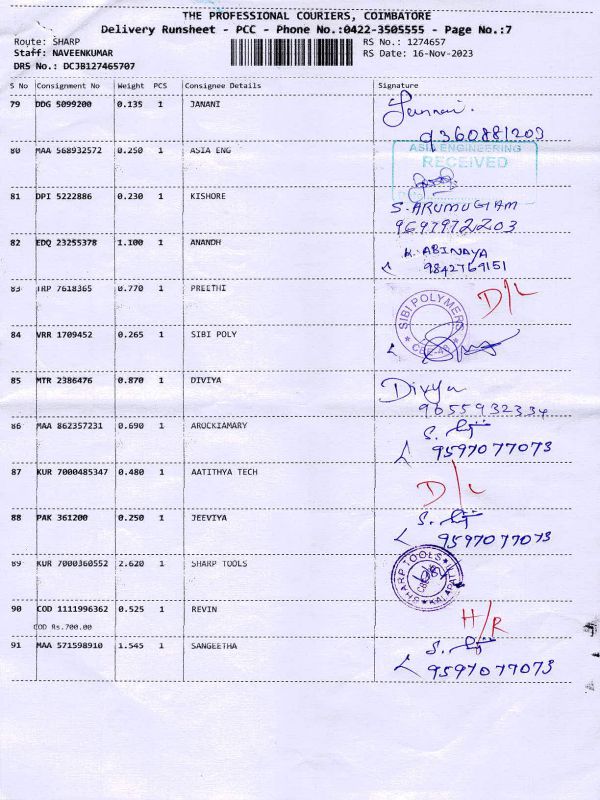 THE PROFESSIONAL COURIERS, COIMBATORE
Delivery Runsheet - PCC - Phone No.:0422-3505555 - Page No.:7
Route: SHARP
RS No.: 1274657
Staff: NAVEENKUMAR
RS Date: 16-Nov-2023
DRS No.: DCJB127465707
S No Consignment No Weight PCS Consignee Details Signature
79 DDG 5099200 0.135 1 JANANI
9360881203
80 MAA 568932572 0.250 1 ASIA ENG
ASIA ENGINEERING
RECEIVED
81 DPI 5222886 0.230 1 KISHORE
S. ARUMUGAM
9697972203
82 EDQ 23255378 1.100 1 ANANDH
K. ABINAYA
9842769151
83 TRP 7618365 0.770 1 PREETHI
D/L
84 VRR 1709452 0.265 1 SIBI POLY
SIBI POLYMERS
85 MTR 2386476 0.870 1 DIVIYA
Divya
9655932334
86 MAA 862357231 0.690 1 AROCKIAMARY
9597077073
87 KUR 7000485347 0.480 1 AATITHYA TECH
D/L
88 PAK 361200 0.250 1 JEEVIYA
9597077073
89 KUR 7000360552 2.620 1 SHARP TOOLS
SHARP TOOLS
90 COD 1111996362 0.525 1 REVIN
COD Rs.700.00
H/R
91 MAA 571598910 1.545 1 SANGEETHA
9597077073